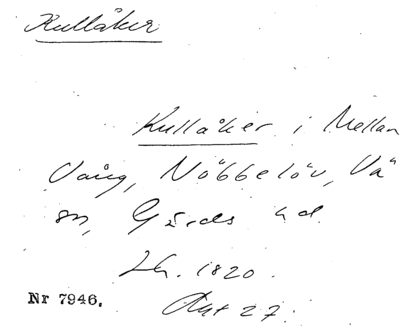 Kullåker
Kullåker i Mellan
Vång, Nöbbelöv, Vä
sn, Gärds hd.
Lh. 1820.
Akt 27.
Nr 7946.